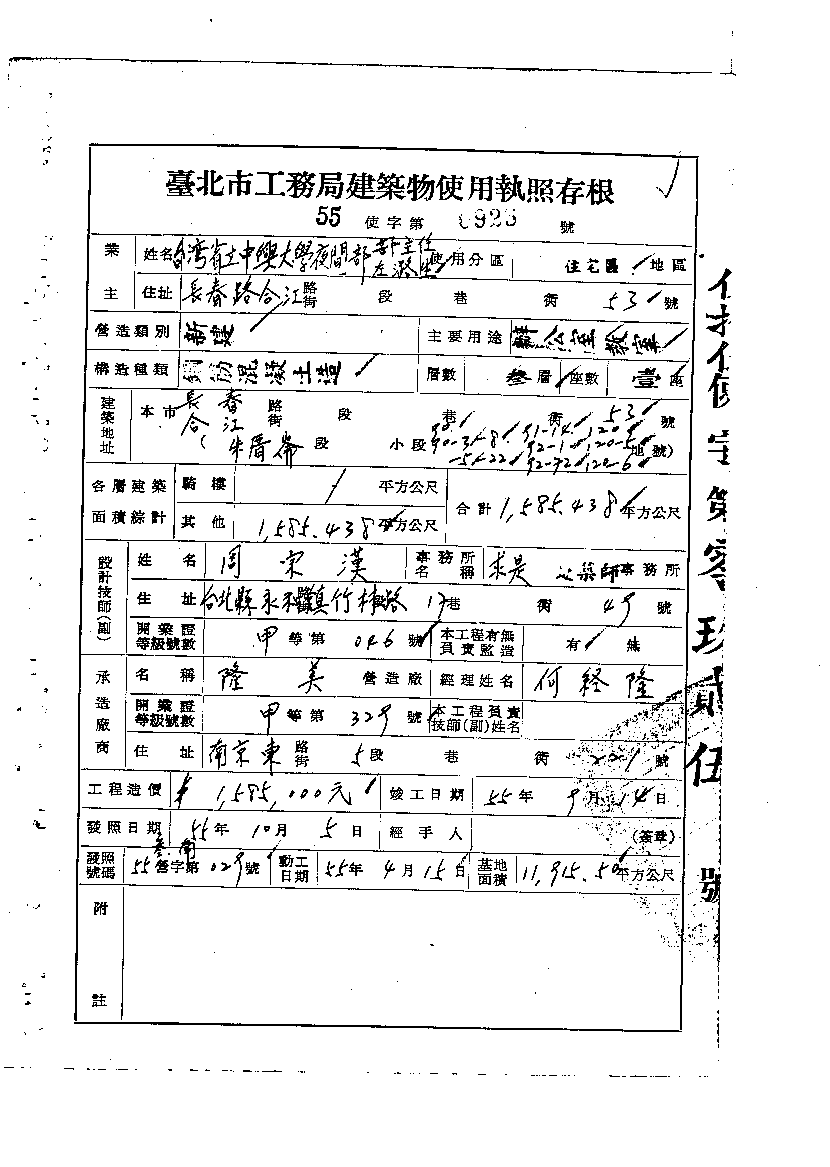 臺北市工務局建築物使用執照存根
55 使字第 0925 號
業主 姓名 台湾省立中興大學夜間部 部主任 左潞生 使用分區 住宅區 地區
住址 長春路合江 路街 段 巷 衖 53 號
營造類別 新建 主要用途 辦公室教室
構造種類 鋼筋混凝土造 層數 叁層 座數 壹座
建築地址 本市 長春 合江 路街 段 巷 衖 53 號
(朱厝崙 段 小段 地號)
各層建築面積綜計 騎樓 / 平方公尺 合計 1,585.438 平方公尺
其他 1,585.438 平方公尺
設計技師(副) 姓名 周宗漢 事務所名稱 求是建築師事務所
住址 台北縣永和鎮竹林路 17巷 衖 49 號
開業證等級號數 甲等第 046 號 本工程有無負責監造 有 無
承造廠商 名稱 隆美 營造廠 經理姓名 何経隆
開業證等級號數 甲等第 329 號 本工程負責技師(副)姓名
住址 南京東 路街 5段 巷 衖 221 號
工程造價 $1,585,000元 竣工日期 55年 9月 14日
發照日期 55年 10月 5日 經手人 (簽章)
發照號碼 55營字第 029 號 動工日期 55年 4月 15日 基地面積 11,915.50 平方公尺
附註
使字第零玖貳伍號